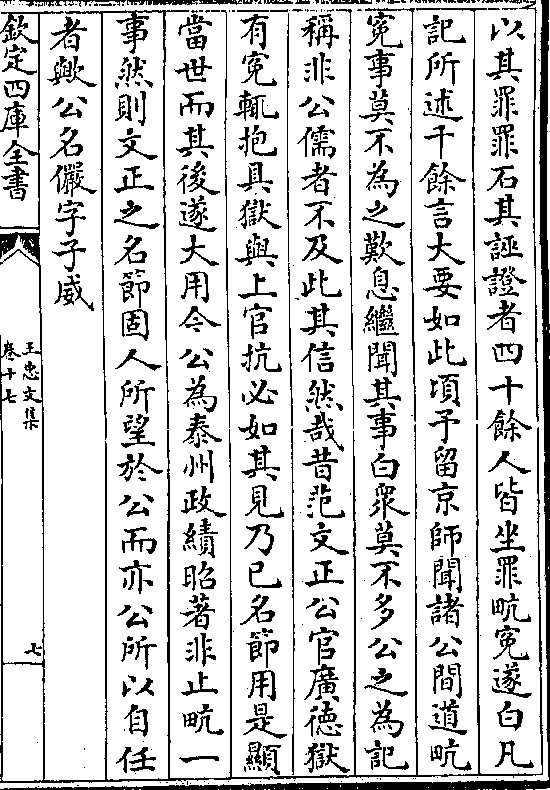 以其罪罪石其誣證者四十餘人皆坐罪㽘寃遂白凡
記所述千餘言大要如此頃予留京師聞諸公間道㽘
寃事莫不為之歎息繼聞其事白衆莫不多公之為記
稱非公儒者不及此其信然哉昔范文正公官廣德獄
有寃輒抱具獄與上官抗必如其見乃已名節用是顯
當世而其後遂大用今公為泰州政績昭著非止㽘一
事然則文正之名節固人所望於公而亦公所以自任
者歟公名儼字子威
欽定四庫全書
王忠文集
卷十七
七